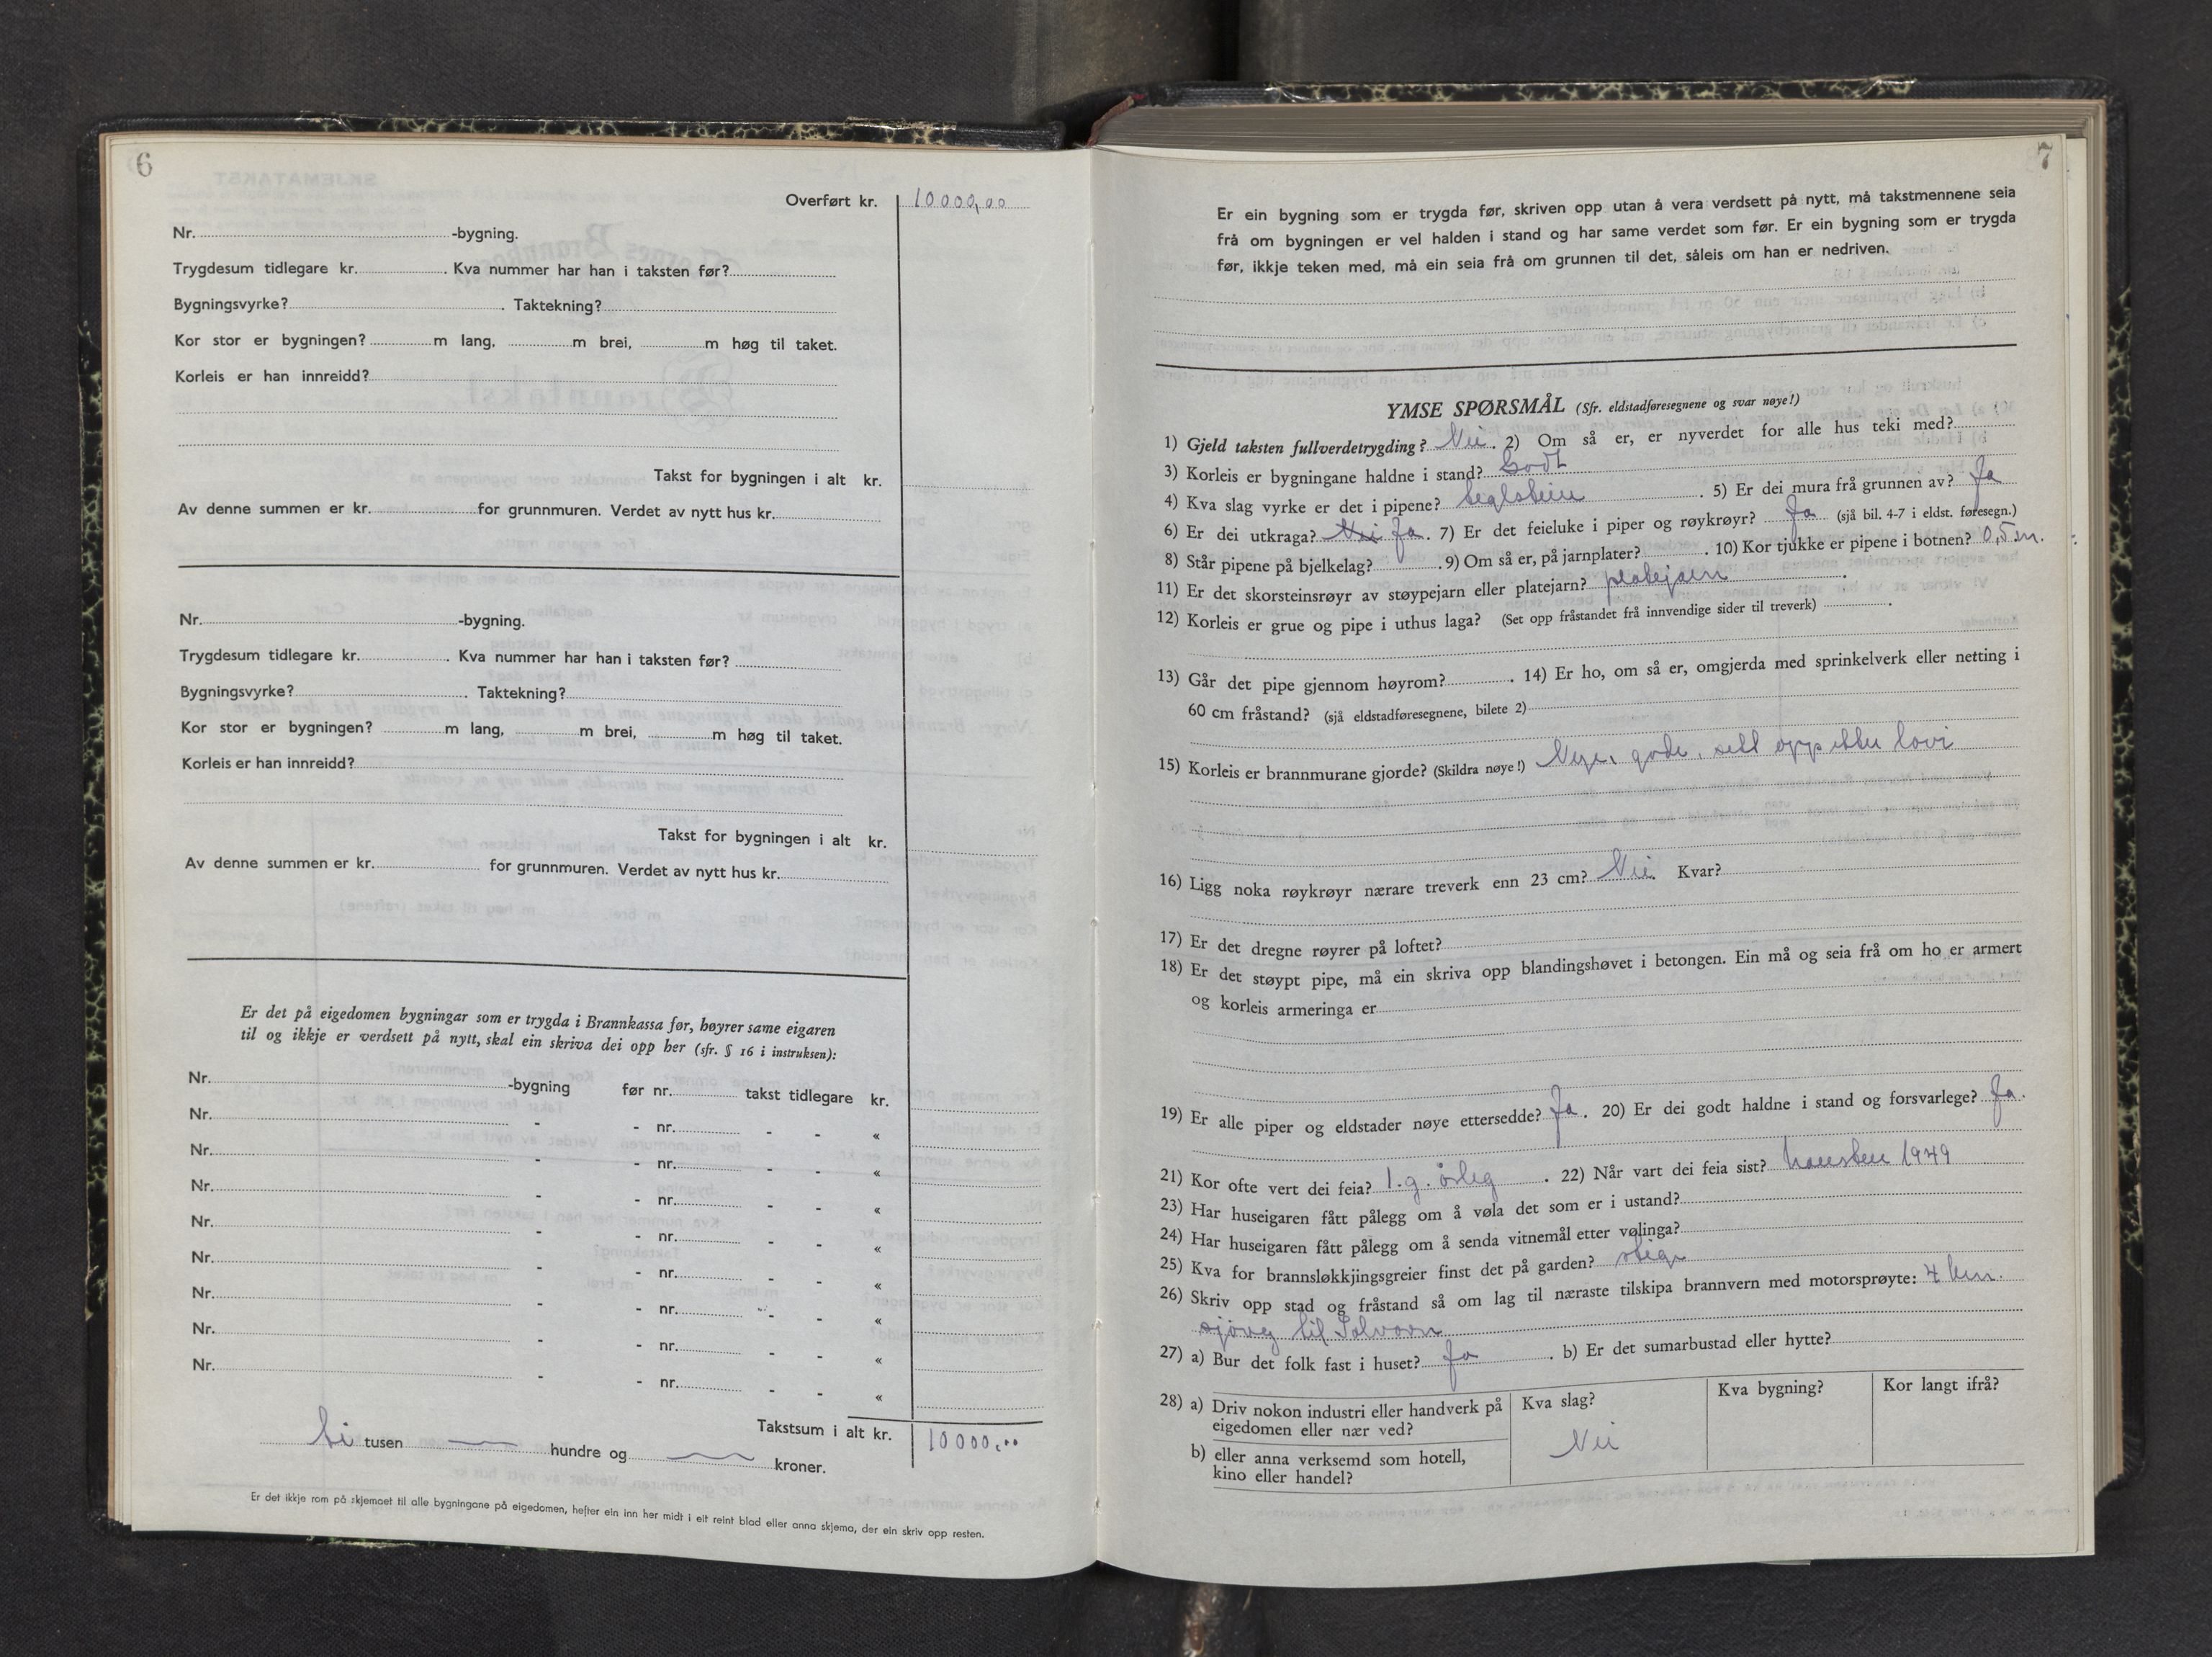 6
Overført kr. 10000,00
Nr. -bygning.
Trygdesum tidlegare kr. . Kva nummer har han i taksten før?
Bygningsvyrke? . Taktekning?
Kor stor er bygningen? m lang, m brei, m høg til taket.
Korleis er han innreidd?
Takst for bygningen i alt kr.
Av denne summen er kr. for grunnmuren. Verdet av nytt hus kr.
Nr. -bygning.
Trygdesum tidlegare kr. . Kva nummer har han i taksten før?
Bygningsvyrke? . Taktekning?
Kor stor er bygningen? m lang, m brei, m høg til taket.
Korleis er han innreidd?
Takst for bygningen i alt kr.
Av denne summen er kr. for grunnmuren. Verdet av nytt hus kr.
Er det på eigedomen bygningar som er trygda i Brannkassa før, høyrer same eigaren
til og ikkje er verdsett på nytt, skal ein skriva dei opp her (sfr. § 16 i instruksen):
Nr. -bygning før nr. takst tidlegare kr.
Nr. - - nr. - - «
Nr. - - nr. - - «
Nr. - - nr. - - «
Nr. - - nr. - - «
Nr. - - nr. - - «
Nr. - - nr. - - «
Nr. - - nr. - - «
Nr. - - nr. - - «
Takstsum i alt kr. 10000,00
ti tusen — hundre og — kroner.
Er det ikkje rom på skjemaet til alle bygningane på eigedomen, hefter ein inn her midt i eit reint blad eller anna skjema, der ein skriv opp resten.
7
Er ein bygning som er trygda før, skriven opp utan å vera verdsett på nytt, må takstmennene seia
frå om bygningen er vel halden i stand og har same verdet som før. Er ein bygning som er trygda
før, ikkje teken med, må ein seia frå om grunnen til det, såleis om han er nedriven.
YMSE SPØRSMÅL (Sfr. eldstadføresegnene og svar nøye!)
1) Gjeld taksten fullverdetrygding? Nei. 2) Om så er, er nyverdet for alle hus teki med?
3) Korleis er bygningane haldne i stand? Godt
4) Kva slag vyrke er det i pipene? teglstein . 5) Er dei mura frå grunnen av? Ja
6) Er dei utkraga? Nei Ja. 7) Er det feieluke i piper og røykrøyr? Ja (sjå bil. 4-7 i eldst. føresegn.)
8) Står pipene på bjelkelag? . 9) Om så er, på jarnplater? . 10) Kor tjukke er pipene i botnen? 0,5 m.
11) Er det skorsteinsrøyr av støypejarn eller platejarn? platejarn .
12) Korleis er grue og pipe i uthus laga? (Set opp fråstandet frå innvendige sider til treverk) .
13) Går det pipe gjennom høyrom? . 14) Er ho, om så er, omgjerda med sprinkelverk eller netting i
60 cm fråstand? (sjå eldstadføresegnene, bilete 2)
15) Korleis er brannmurane gjorde? (Skildra nøye!) Nye, gode, sett opp etter lovi
16) Ligg noka røykrøyr nærare treverk enn 23 cm? Nei. Kvar?
17) Er det dregne røyrer på loftet?
18) Er det støypt pipe, må ein skriva opp blandingshøvet i betongen. Ein må og seia frå om ho er armert
og korleis armeringa er
19) Er alle piper og eldstader nøye ettersedde? Ja. 20) Er dei godt haldne i stand og forsvarlege? Ja.
21) Kor ofte vert dei feia? 1. g. årleg . 22) Når vart dei feia sist? hausten 1949
23) Har huseigaren fått pålegg om å vøla det som er i ustand?
24) Har huseigaren fått pålegg om å senda vitnemål etter vølinga?
25) Kva for brannsløkkjingsgreier finst det på garden? stige
26) Skriv opp stad og fråstand så om lag til næraste tilskipa brannvern med motorsprøyte: 4 km.
sjøveg til Solvorn
27) a) Bur det folk fast i huset? Ja . b) Er det sumarbustad eller hytte?
28) a) Driv nokon industri eller handverk på Kva slag? Kva bygning? Kor langt ifrå?
eigedomen eller nær ved?
Nei
b) eller anna verksemd som hotell,
kino eller handel?